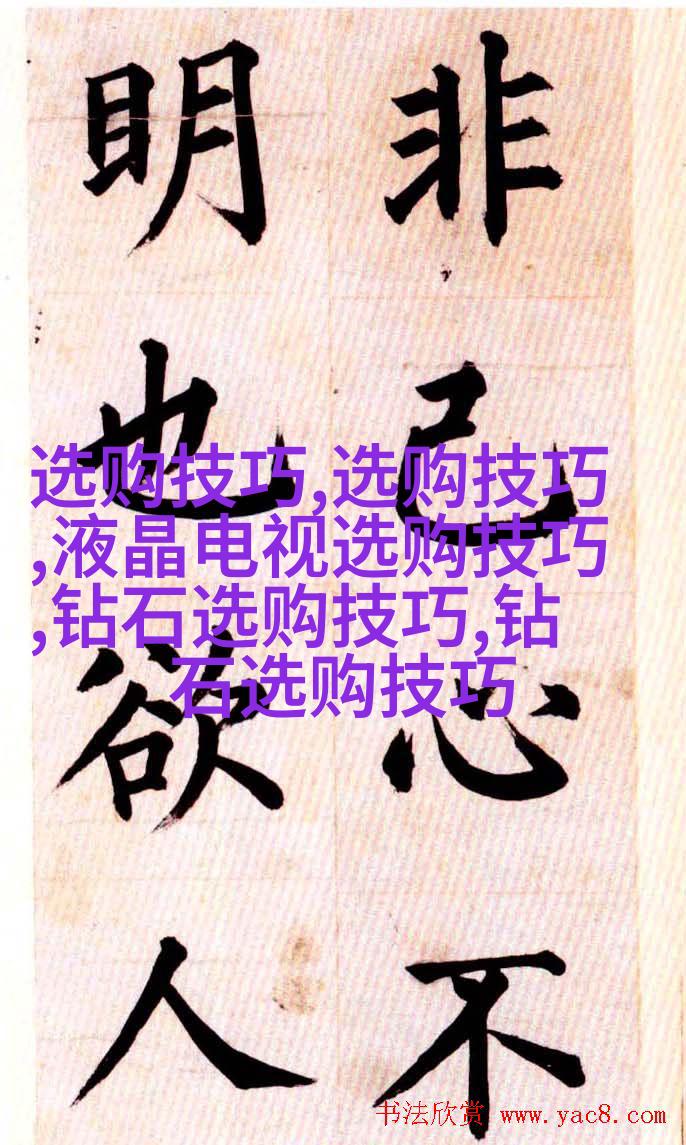 非己心不
明也欲人
选购技巧,选购技巧
,液晶电视选购技巧
,钻石选购技巧,钻
石选购技巧
书法欣赏 www.yac8.com